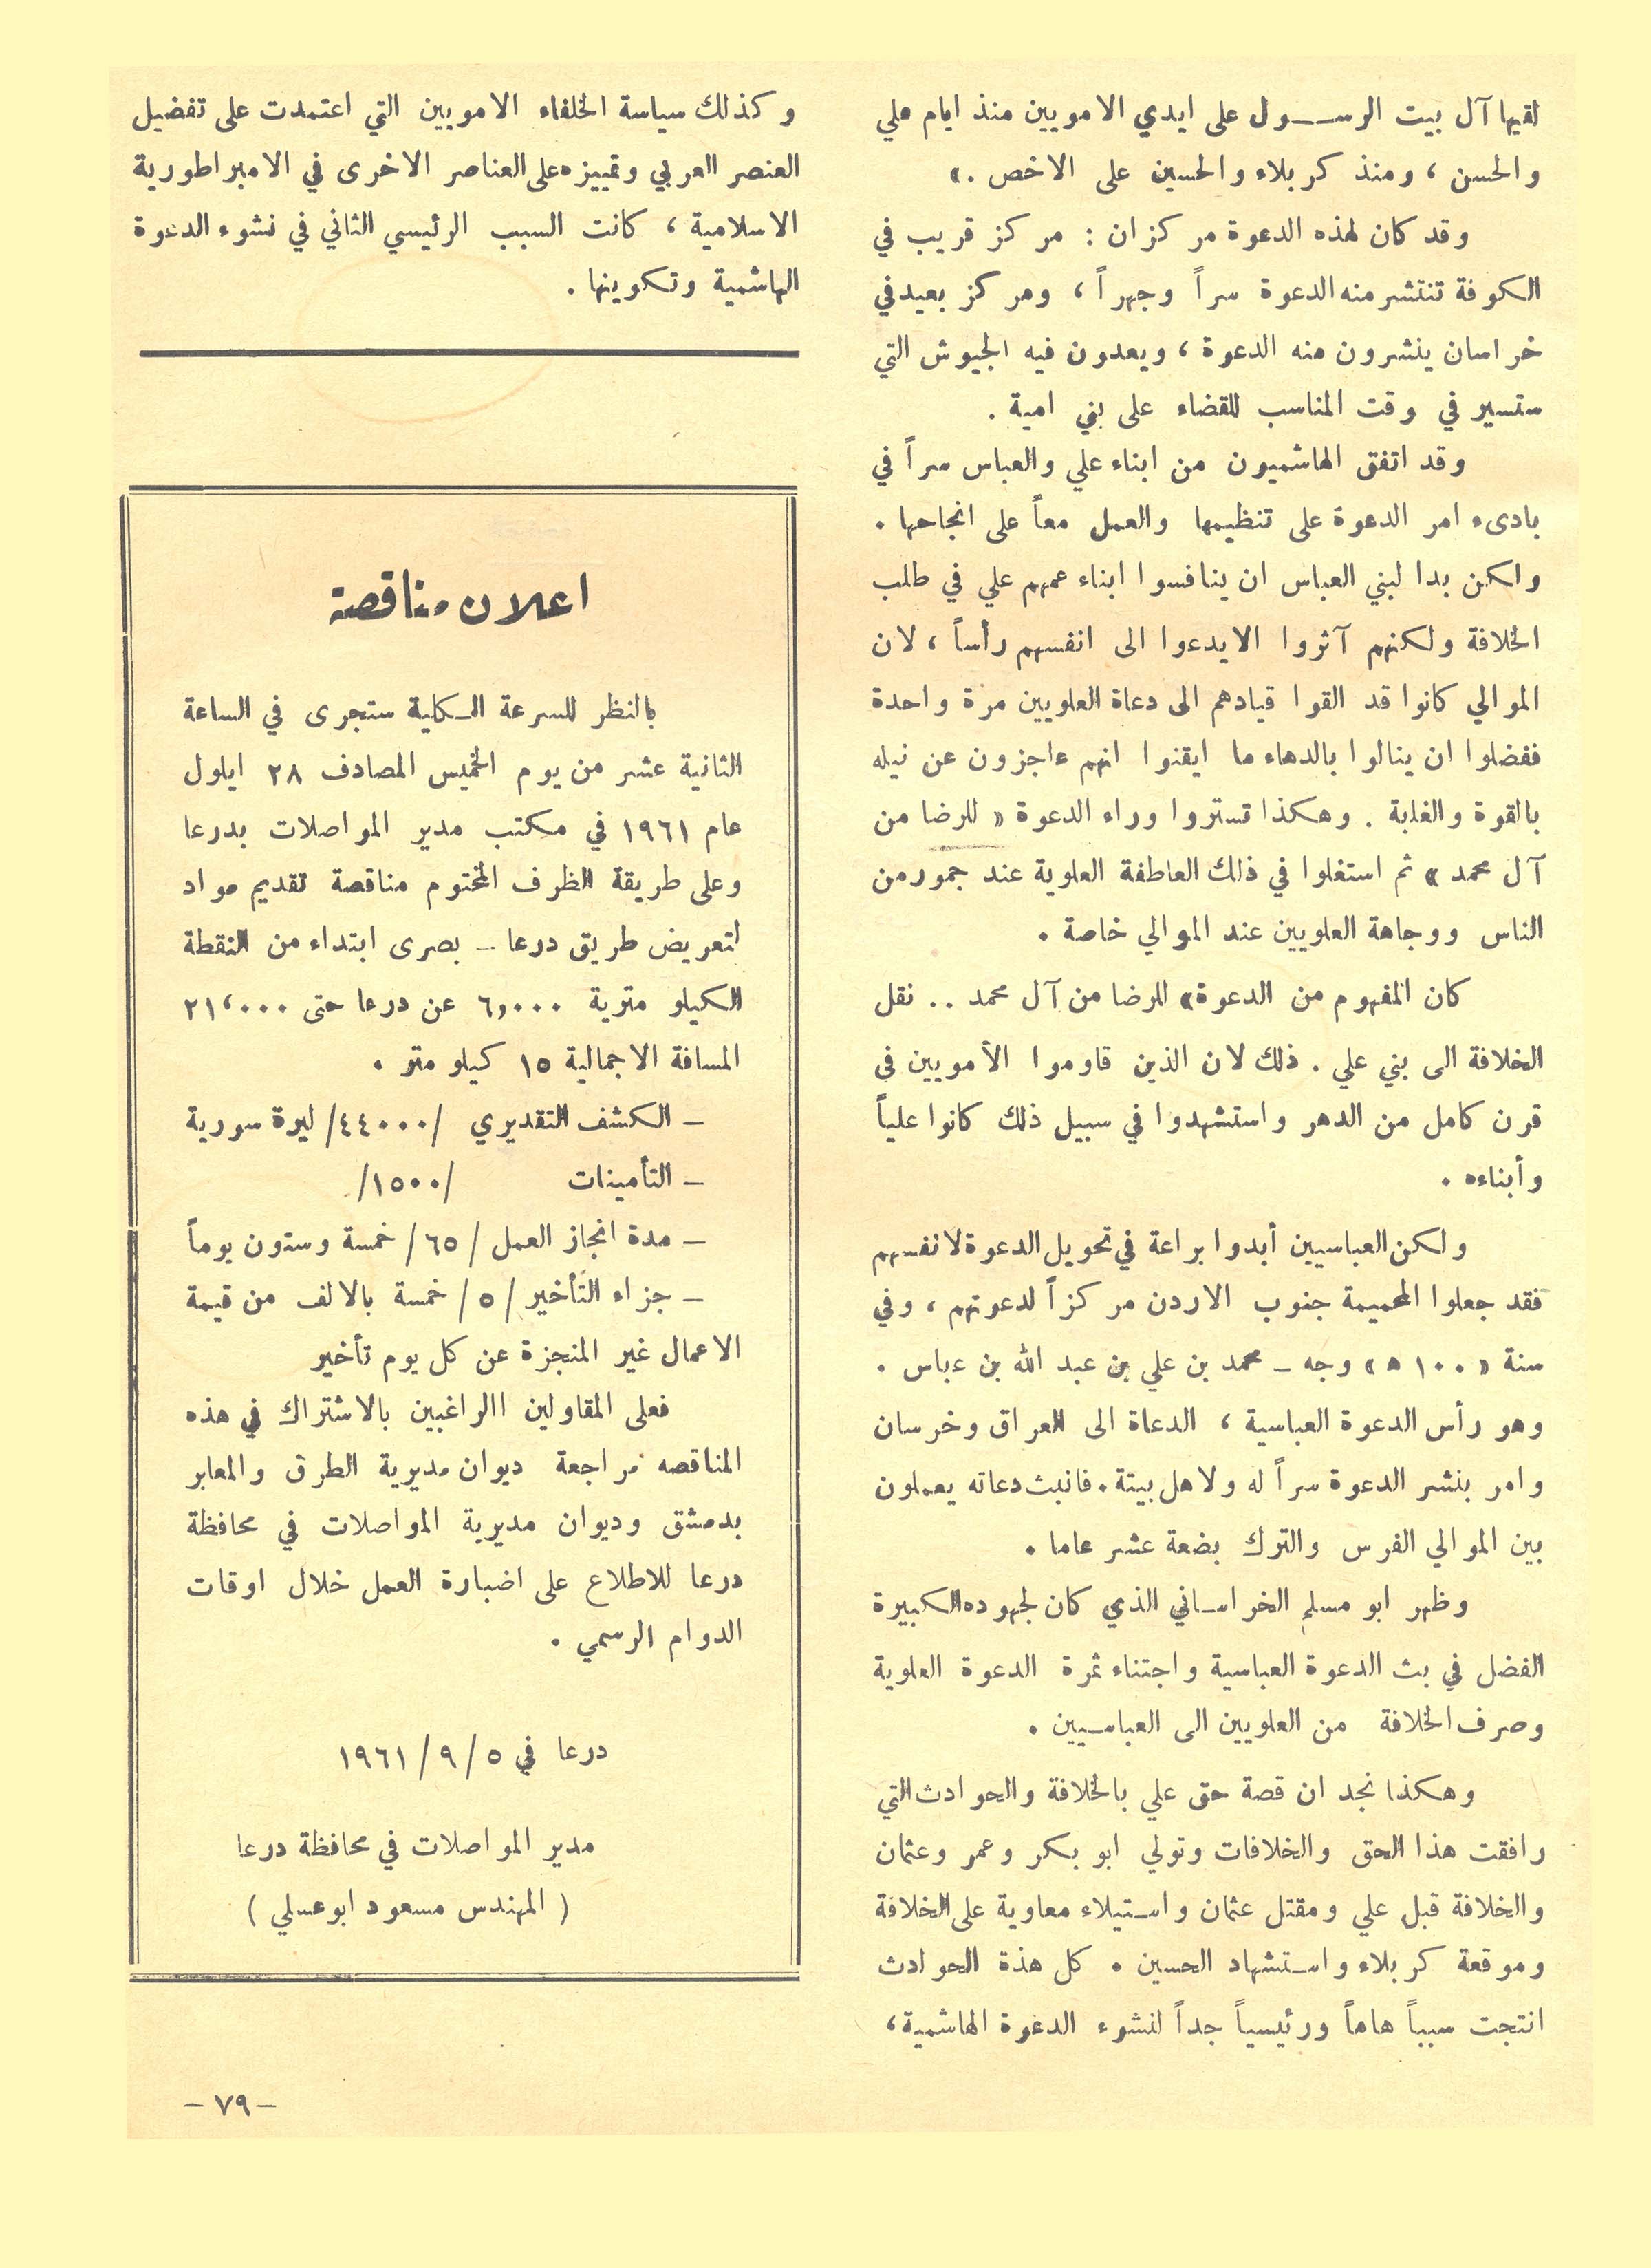 لقيها آل بيت الرســـول على ايدي الامويين منذ ايام علي
والحسن ، ومنذ كربلاء والحسين على الاخص .»
وقد كان لهذه الدعوة مركزان : مركز قريب في
الكوفة تنتشر منه الدعوة سراً وجهراً ، ومركز بعيد في
خراسان ينشرون منه الدعوة ، ويعدون فيه الجيوش التي
ستسير في وقت المناسب للقضاء على بني امية .
وقد اتفق الهاشميون من ابناء علي والعباس سراً في
بادىء امر الدعوة على تنظيمها والعمل معاً على انجاحها .
ولكن بدا لبني العباس ان ينافسوا ابناء عمهم علي في طلب
الخلافة ولكنهم آثروا الا يدعوا الى انفسهم رأساً ، لان
الموالي كانوا قد القوا قيادهم الى دعاة العلويين مرة واحدة
ففضلوا ان ينالوا بالدهاء ما ايقنوا انهم عاجزون عن نيله
بالقوة والغلبة . وهكذا تستروا وراء الدعوة « للرضا من
آل محمد » ثم استغلوا في ذلك العاطفة العلوية عند جمور من
الناس ووجاهة العلويين عند الموالي خاصة .
كان المفهوم من الدعوة» للرضا من آل محمد .. نقل
الخلافة الى بني علي . ذلك لان الذين قاوموا الأمويين في
قرن كامل من الدهر واستشهدوا في سبيل ذلك كانوا علياً
وأبناءه .
ولكن العباسيين أبدوا براعة في تحويل الدعوة لانفسهم
فقد جعلوا المحميمة جنوب الاردن مركزاً لدعوتهم ، وفي
سنة « ١٠٠ ه » وجه ــ محمد بن علي بن عبد الله بن عباس .
وهو رأس الدعوة العباسية ، الدعاة الى العراق وخرسان
وامر بنشر الدعوة سراً له ولاهل بيتة . فانبث دعاته يعملون
بين الموالي الفرس والترك بضعة عشر عاما .
وظهر ابو مسلم الخراساني الذي كان لجهوده الكبيرة
الفضل في بث الدعوة العباسية واجتناء ثمرة الدعوة العلوية
وصرف الخلافة من العلويين الى العباسيين .
وهكذا نجد ان قصة حق علي بالخلافة والحوادث التي
رافقت هذا الحق والخلافات وتولي ابو بكر وعمر وعثمان
والخلافة قبل علي ومقتل عثمان واستيلاء معاوية على الخلافة
وموقعة كربلاء واستشهاد الحسين . كل هذة الحوادث
انتجت سبباً هاماً ورئيسياً جداً لنشوء الدعوة الهاشمية ،
وكذلك سياسة الخلفاء الامويين التي اعتمدت على تفضيل
العنصر العربي وتمييزه على العناصر الاخرى في الامبراطورية
الاسلامية ، كانت السبب الرئيسي الثاني في نشوء الدعوة
الهاشمية وتكوينها .
اعلان مناقصة
بالنظر للسرعة الـكلية ستجرى في الساعة
الثانية عشر من يوم الخميس المصادف ٢٨ ايلول
عام ١٩٦١ في مكتب مدير المواصلات بدرعا
وعلى طريقة الظرف المختوم مناقصة تقديم مواد
لتعريض طريق درعا ــ بصرى ابتداء من النقطة
الكيلو مترية ٦,٠٠٠ عن درعا حتى ٢١،٠٠٠
المسافة الاجمالية ١٥ كيلو متر .
ــ الكشف التقديري /٤٤٠٠٠/ ليرة سورية
ــ التأمينات /١٥٠٠/
ــ مدة انجاز العمل /٦٥/ خمسة وستون يوماً
ــ جزاء التأخير /٥/ خمسة بالالف من قيمة
الاعمال غير المنجزة عن كل يوم تأخير
فعلى المقاولين االراغبين بالاشتراك في هذه
المناقصه مراجعة ديوان مديرية الطرق والمعابر
بدمشق وديوان مديرية المواصلات في محافظة
درعا للاطلاع على اضبارة العمل خلال اوقات
الدوام الرسمي .
درعا في ٥ / ٩ / ١٩٦١
مدير المواصلات في محافظة درعا
( المهندس مسعود ابو عسلي )
– ٧٩ –